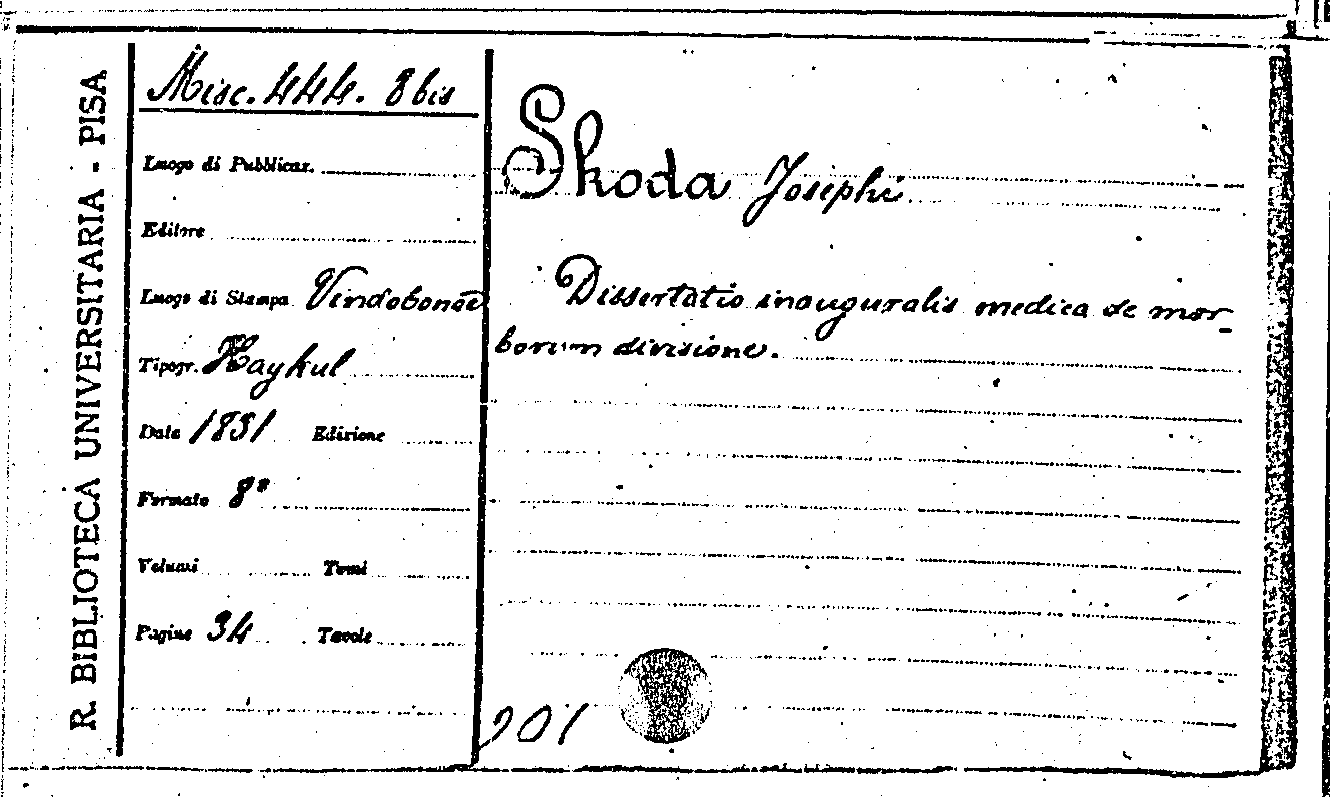 R. BIBLIOTECA UNIVERSITARIA - PISA
Misc. 444. 8 bis
Luogo di Pubblicaz.
Editore
Luogo di Stampa Vindobonae
Tipogr. Haykul
Data 1831 Edizione
Formato 8°
Volumi Tomi
Pagine 34 Tavole
Skoda Josephi
Dissertatio inauguralis medica de mor-
borum divisione.
901